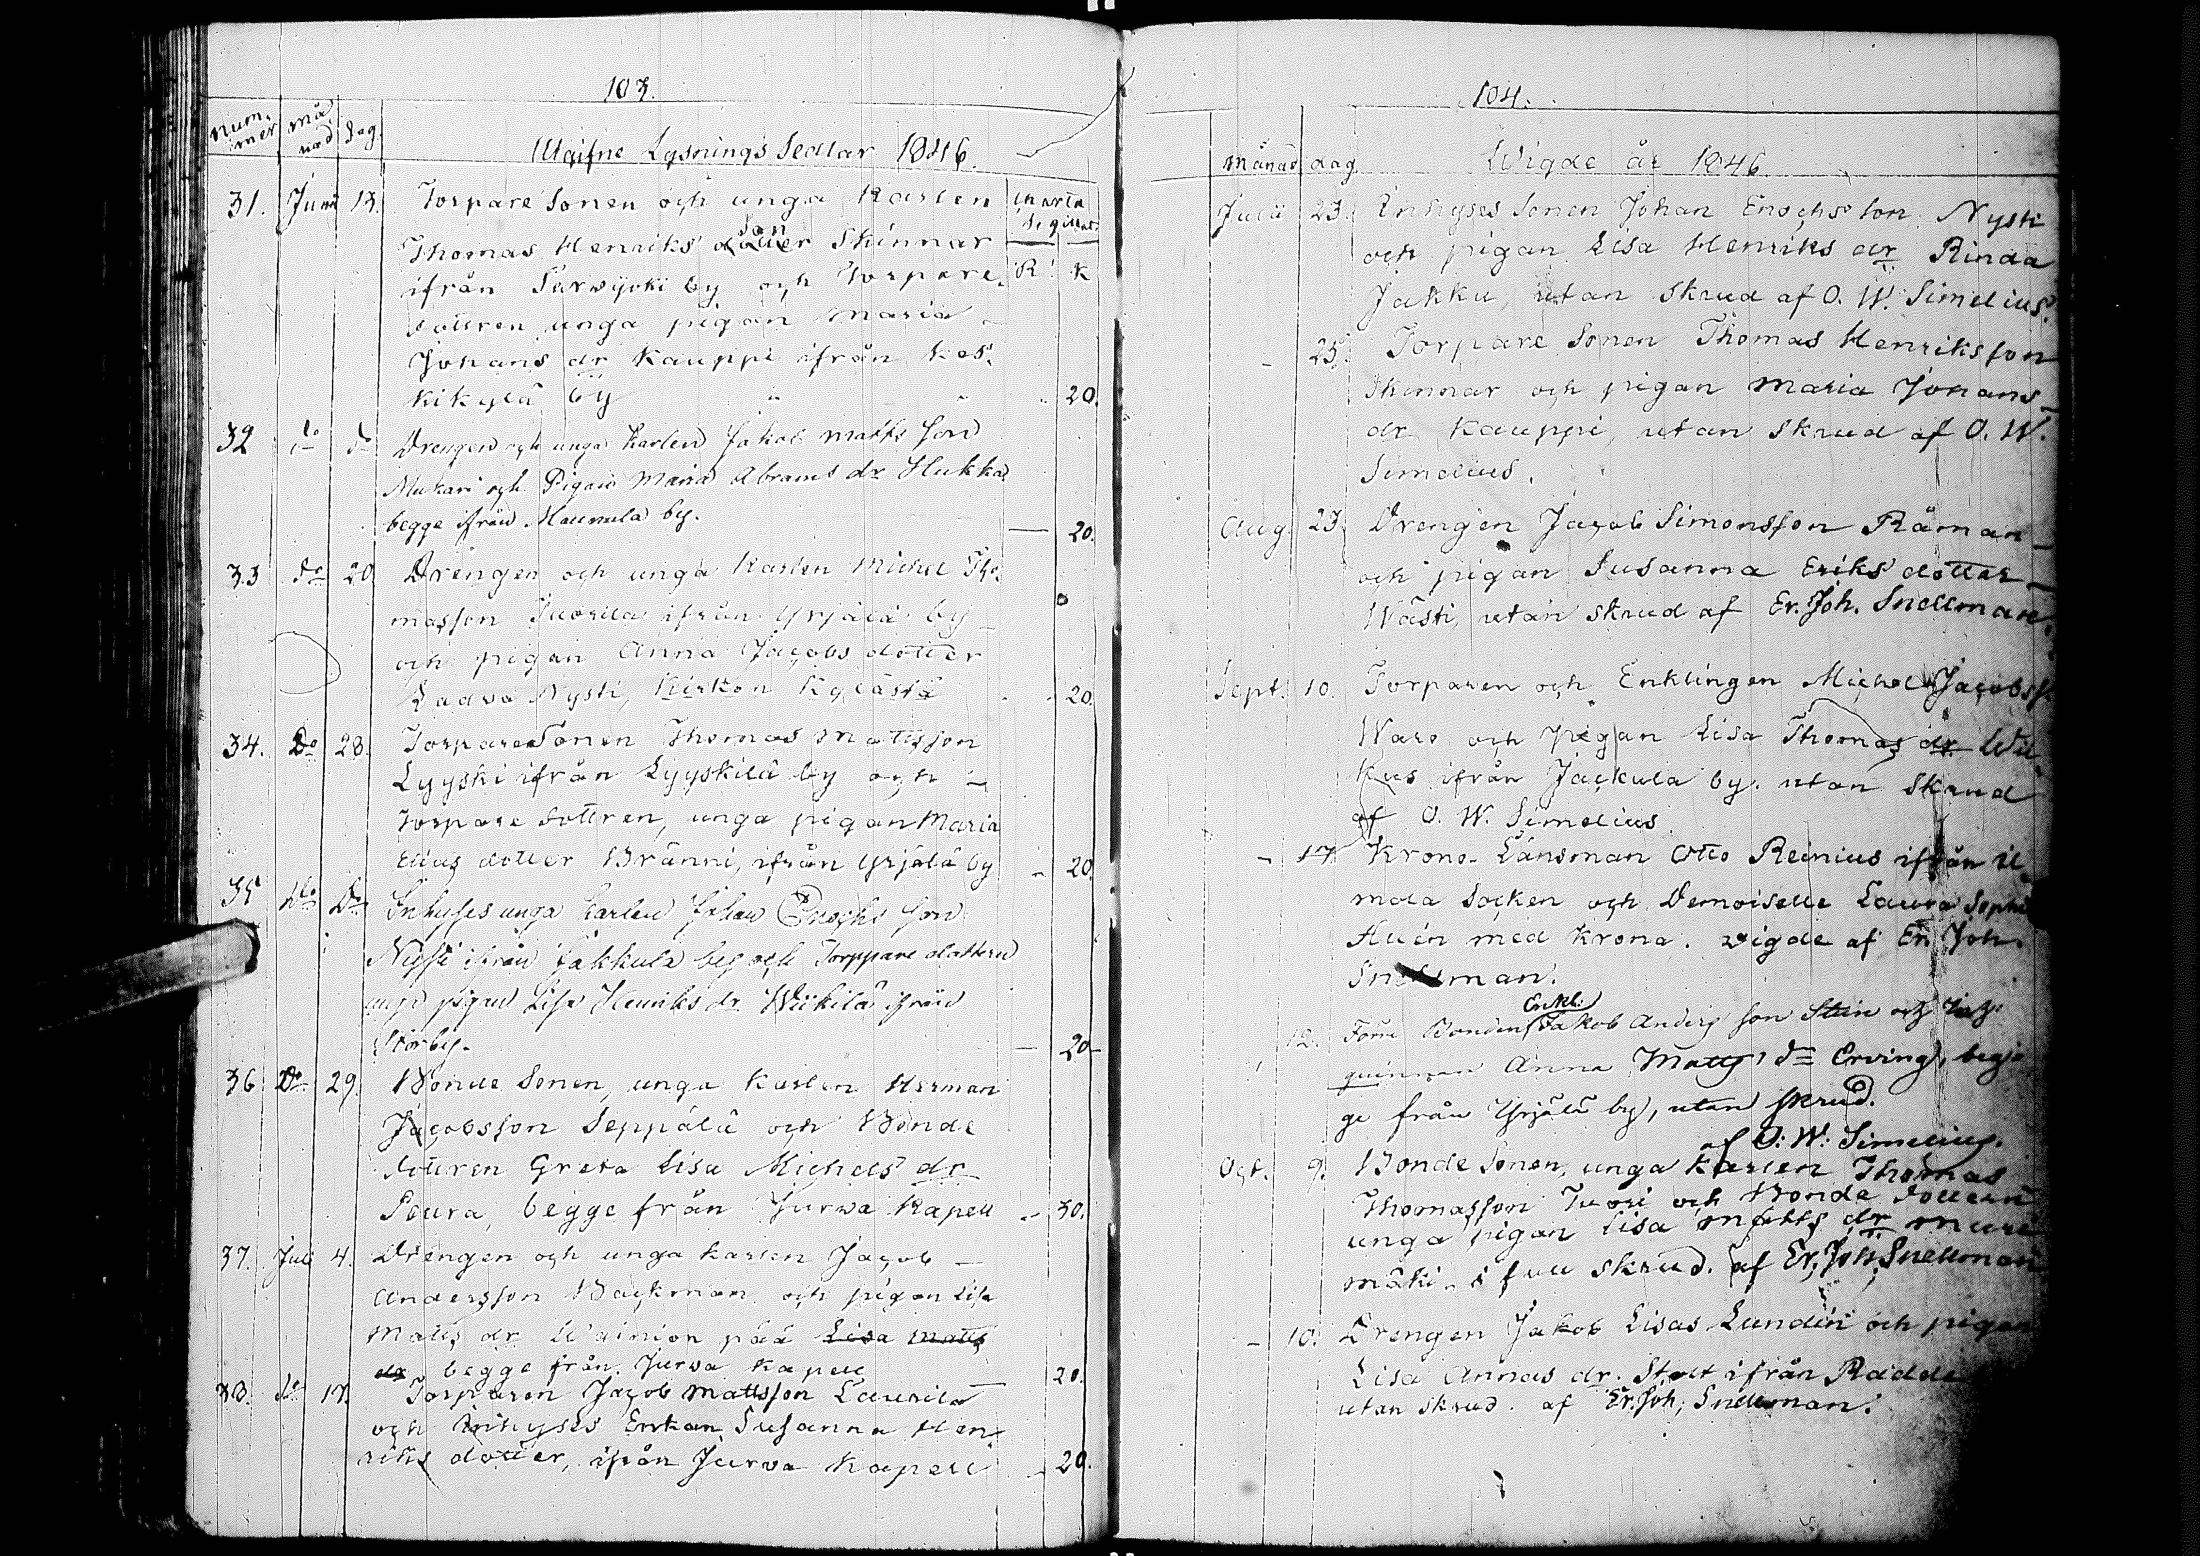 103.
num-mer månad dag
Utgifne Lysnings Sedlar 1846.
31. Juni 13. Torpare Sonen och unga Karlen Charta
Thomas Henriks dotter son Skinnar Sigillat
ifrån Turwijoki by och Torpare R: K
dottren unga pigan Maria
Johans dr Kauppi ifrån Kos-
kikylä by 20.
32 do do Drengen och unga Karlen Jakob Matts son
Mukari och Pigan Maria Abrams dr Hukka
begge ifrån Maunula by. 20.
33 do 20 Drengen och unga Karlen Michel Tho-
masson Juorila ifrån Yrjälä by
och pigan Anna Jacobs dotter
Ladva Nysti, Kirkon Kylästä 20.
34. Do 28. Torpare Sonen Thomas Mattsson
Lyyski ifrån Lyyskilä by och
Torpare dottren, unga pigan Maria
Elias dotter Bränni, ifrån Yrjälä by 20.
35 Do Do Inhyses unga Karlen Johan Enochs son
Nysti ifrån Jakkula by och Torppare dotteren
unga pigan Lisa Henriks dr Wiikilä ifrån
Storby. 20
36 Do 29. Bonde Sonen, unga Karlen Herman
Jacobsson Seppälä och Bonde
dottren Greta Lisa Michels dr
Peura, begge från Jurva Kapell 30.
37. Juli 4. Drengen och unga karlen Jacob
Andersson Backman och pigan Lisa
Matts dr Wainion pää Lisa Matts
dr begge från Jurva Kapell 20.
38. do 17. Torparen Jacob Mattsson Laurila
och Inhyses Enkan Susanna Hen-
riks dotter, ifrån Jurva Kapell 20.
104.
månad dag Wigde år 1846.
Julii 23. Inhyses Sonen Johan Enochs son Nysti
och pigan Lisa Henriks dr Rinda
Jakku, utan skrud af O. W. Simelius.
- 25. Torpare Sonen Thomas Henriksson
Skinnar och pigan Maria Johans
dr Kauppi, utan skrud af O. W.
Simelius.
Aug. 23. Drengen Jacob Simonsson Råman
och pigan Susanna Eriks dotter
Wästi, utan skrud af Er. Joh. Snellman.
Sept. 10. Torparen och Enklingen Michel Jacobss.
Waro och pigan Lisa Thomas dr Wil-
kus ifrån Jackula by. utan skrud
af O. W. Simelius.
- 17 Krono Länsman Otto Reinius ifrån Il-
mola Socken och Demoiselle Laura Sophi
Aluén med Krona. vigde af Er. Joh.
Snellman.
12. Förre Bonden Enkl. Jakob Anders son Stein och
quinnan Anna Matts dr Erving, beg-
ge från Yrjälä by, utan skrud.
af O: W: Simelius.
Oct. 9. Bonde Sonen, unga Karlen Thomas
Thomasson Tuori och Bonde dottern
unga pigan Lisa Matts dr Muri
mäki i full skrud. af Er. Joh. Snellman
- 10. Drengen Jakob Lisas Lundin och pigan
Lisa Annas dr. Stolt ifrån Radde
utan skrud. af Er. Joh. Snellman.